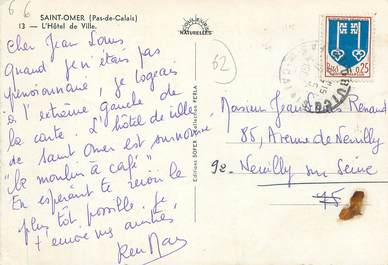 6 6
SAINT-OMER (Pas-de-Calais)
13 — L'Hôtel de Ville.
NATURELLES
62
Cher Jean Louis
Quand je n'étais pas
pensionnaire, je logeais
à l'extrême gauche de
la carte. L'hôtel de ville
de Saint Omer est surnommé
"le moulin à café"
En espérant te revoir le
plus tôt possible. je
t'envoie mes amitiés,
Editions SOFER Collection PERLA
0,25
Monsieur Jean Louis Renaud
85, Avenue de Neuilly
92 Neuilly sur Seine
75